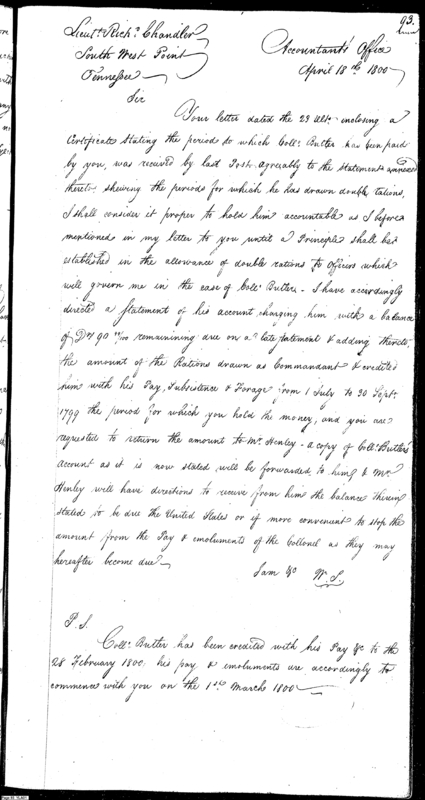 93.
Lieut. Richd. Chandler
South West Point
Tennessee
Accountant's Office
April 18th 1800
Sir
Your letter dated the 23 Ulto. enclosing a
Certificate stating the periods to which Coll. Butler has been paid
by you, was received by last Post. agreeably to the Statement annexed
thereto, shewing the periods for which he has drawn double rations,
I shall consider it proper to hold him accountable as I before
mentioned in my letter to you until a Principle shall be
established in the allowance of double rations to Officers which
will govern me in the case of Coll. Butler - I have accordingly
directed a Statement of his account, charging him with a balance
of Drs 90 remainining due on a late statement & adding thereto,
the amount of the Rations drawn as Commandant & credited
him with his Pay, Subsistence & Forage from 1 July to 30 Sept.
1799 the period for which you hold the money, and you are
requested to return the amount to Mr. Henley - a copy of Coll. Butler's
account as it is now stated will be forwarded to him & Mr.
Henley will have directions to receive from him the balance therein
stated to be due the United States or if more convenient to stop the
amount from the Pay & emoluments of the Collonel as they may
hereafter become due.
I am &c W. S.
P. S.
Coll. Butler has been credited with his Pay &c to the
28 February 1800. his pay & emoluments are accordingly to
commence with you on the 1st March 1800